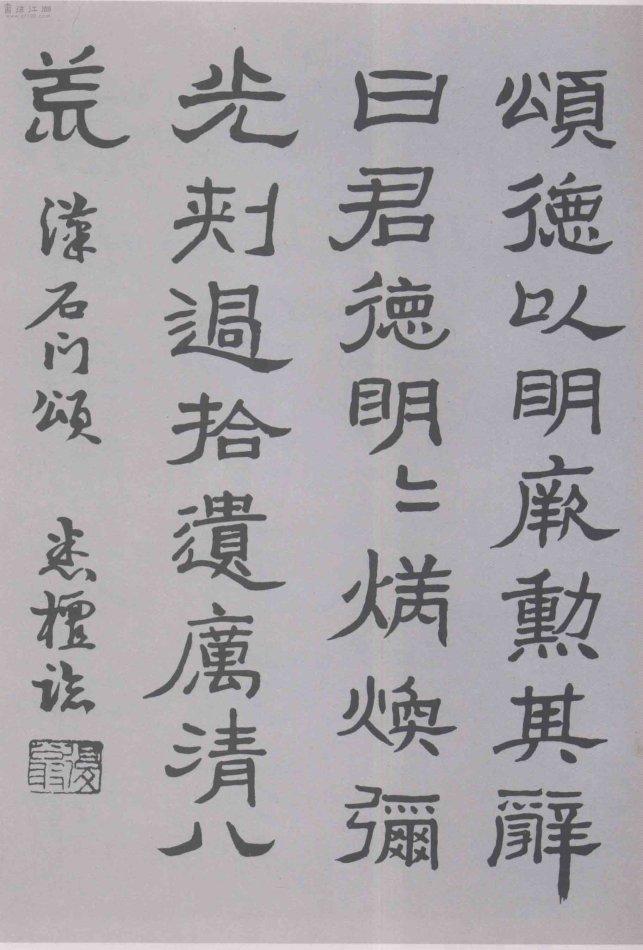 頌德以明厥勳其辭
曰君德明〻炳煥彌
光刺過拾遺厲清八
荒
漢石門頌
書法江湖